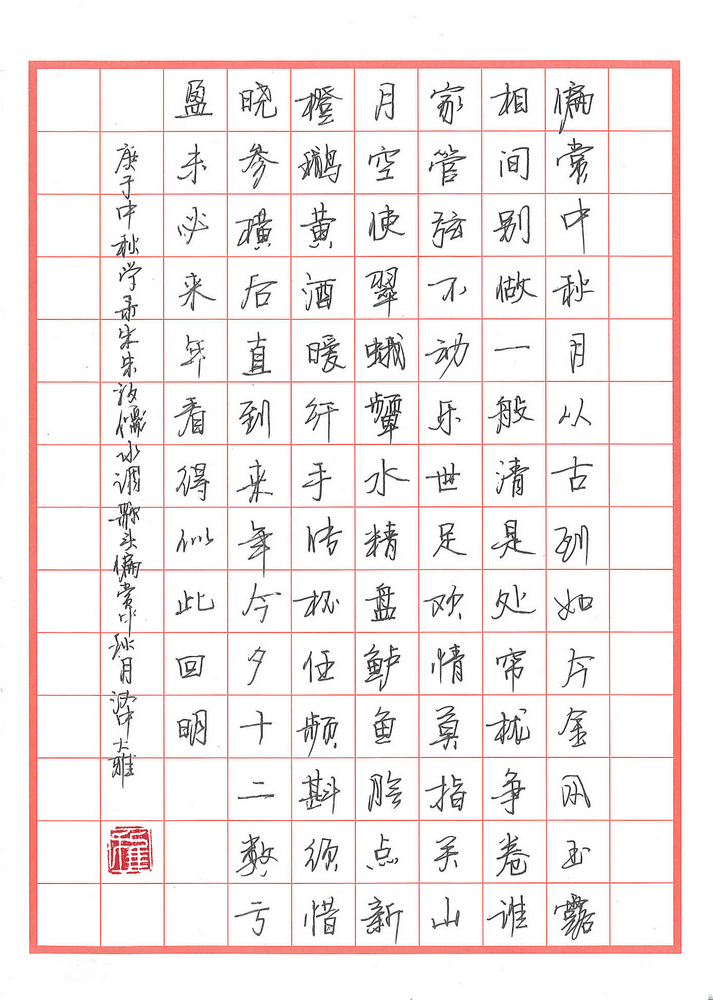 偏赏中秋月从古到如今金风玉露
相间别做一般清是处帘栊争卷谁
家管弦不动乐世足欢情莫指关山
月空使翠蛾颦水精盘鲈鱼脍点新
橙鹅黄酒暖纤手传杯任频斟须惜
晓参横后直到来年今夕十二数亏
盈未必来年看得似此回明
庚子中秋学录宋朱敦儒水调歌头偏赏中秋月 中大雅
雅